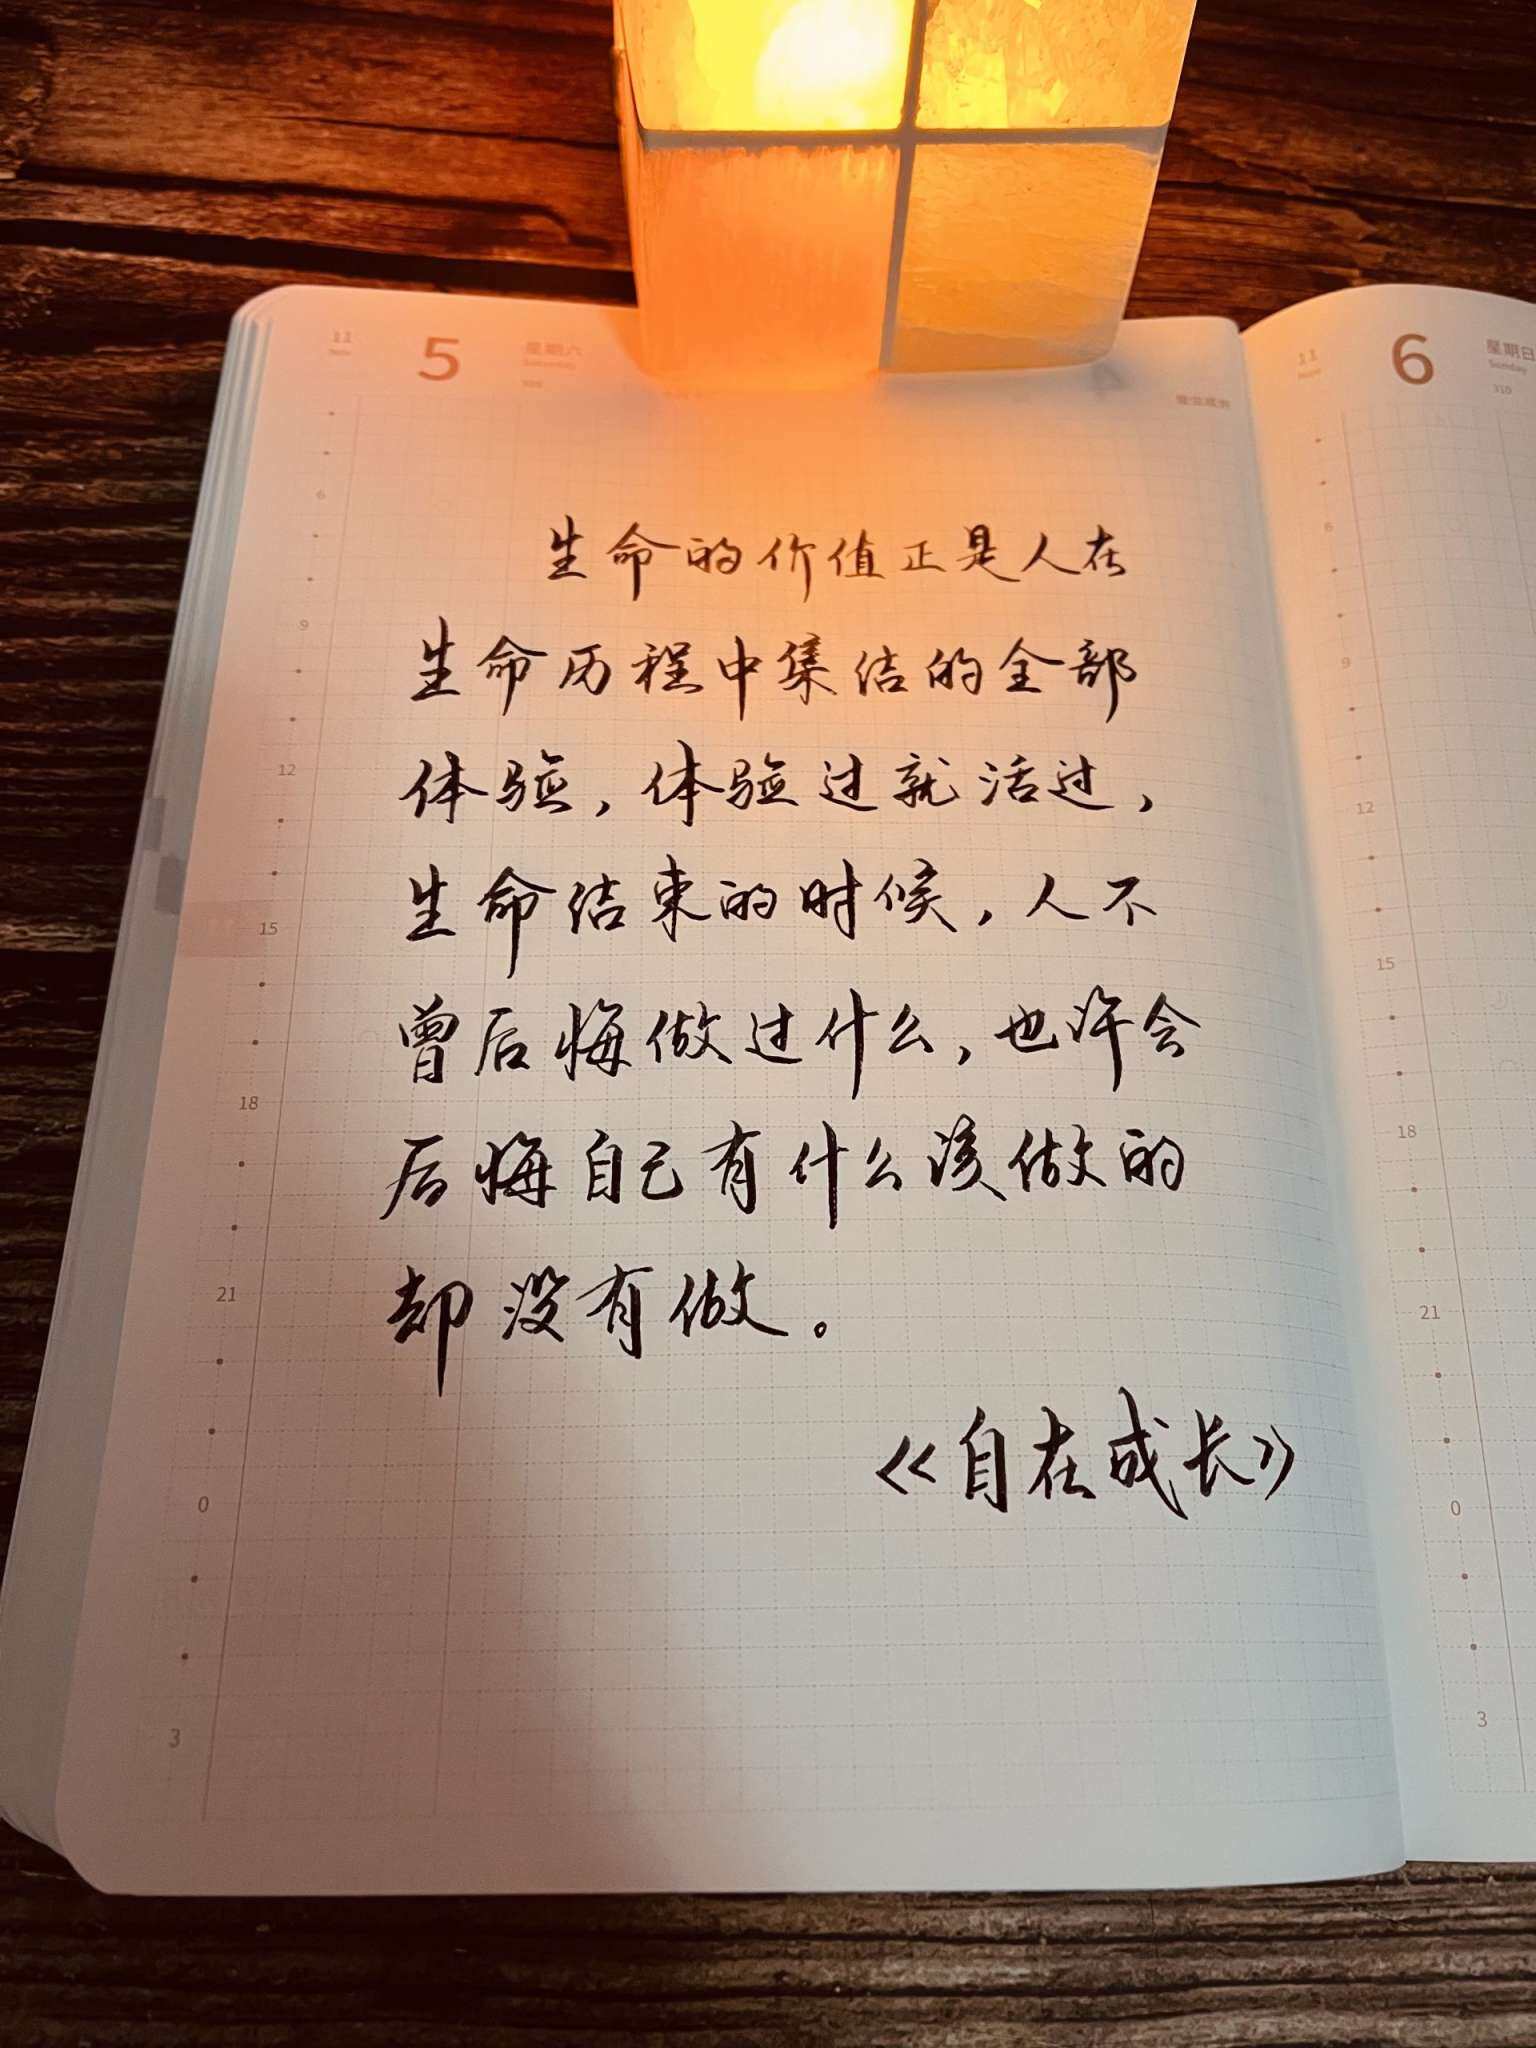 11
5
星期六
Saturday
309
11
6
星期日
Sunday
310
生命的价值正是人在
生命历程中集结的全部
体验，体验过就活过，
生命结束的时候，人不
曾后悔做过什么，也许会
后悔自己有什么该做的
却没有做。
《自在成长》
6
9
12
15
18
21
0
3
6
9
12
15
18
21
0
3